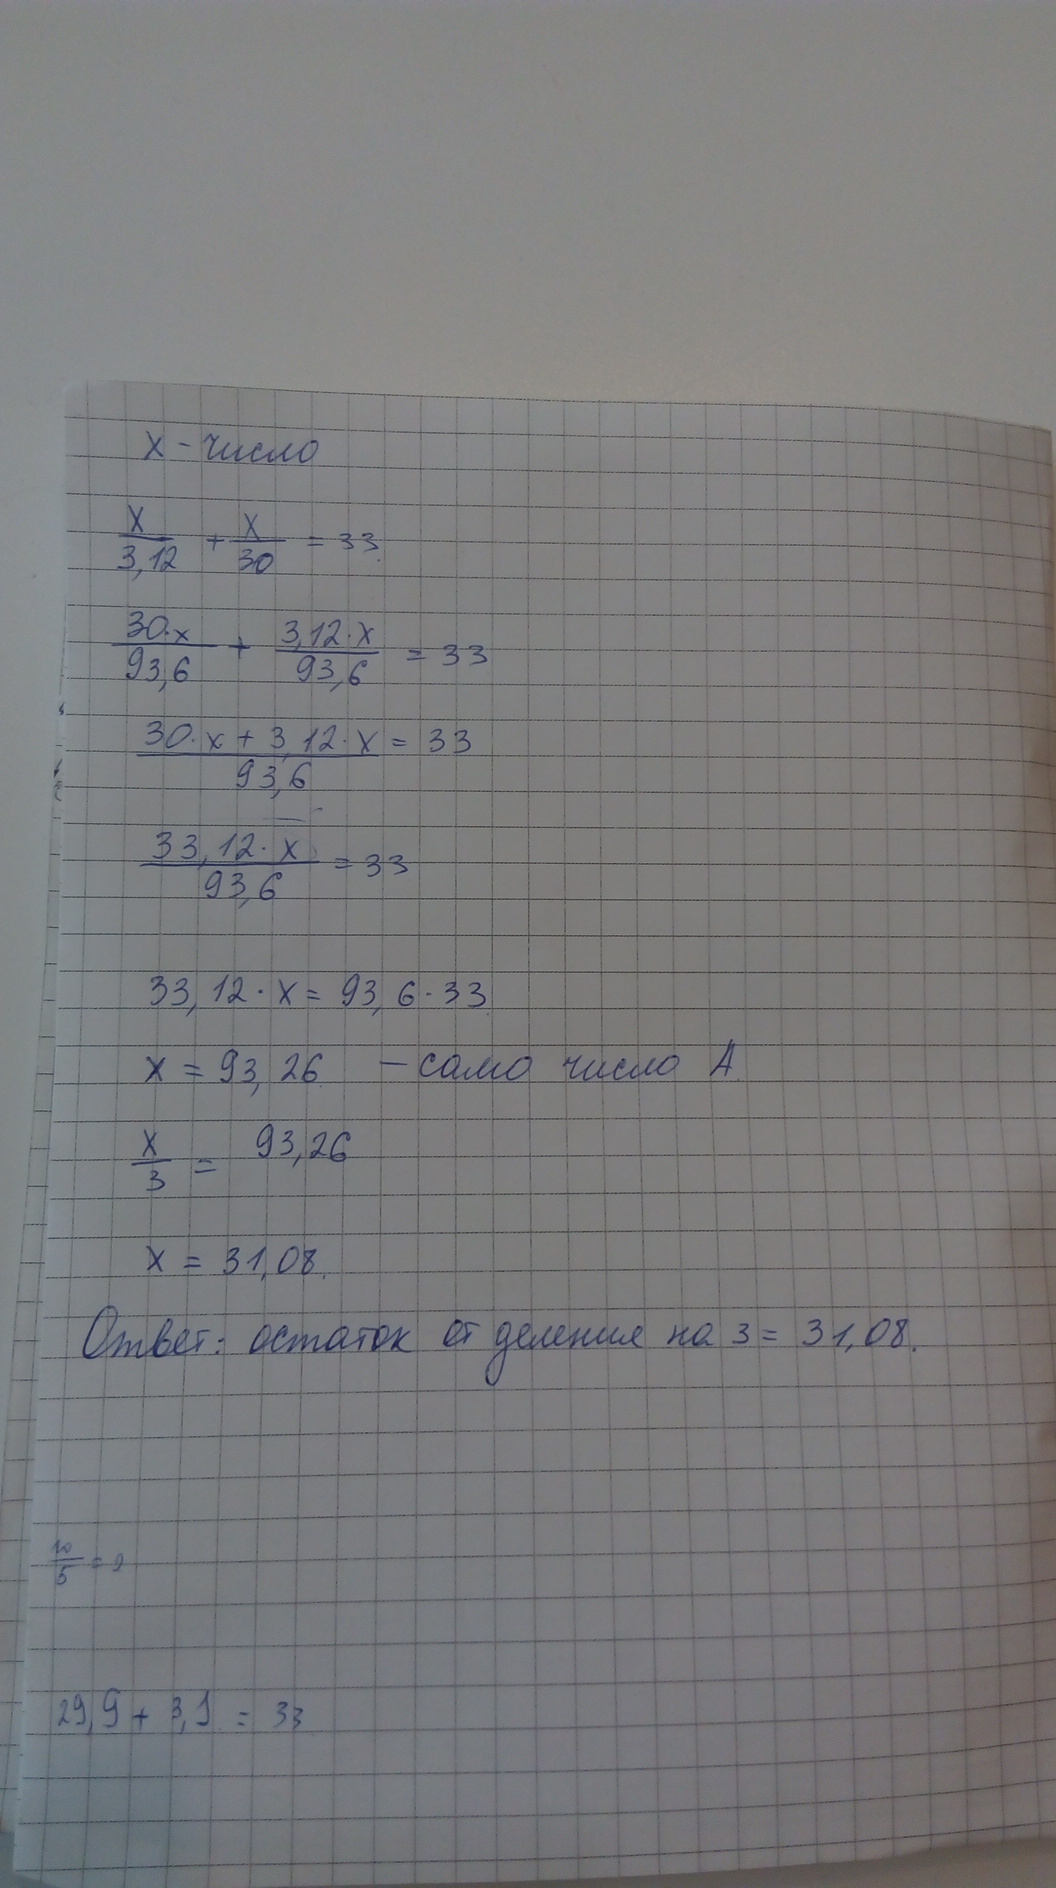 x - число
x/3,12 + x/30 = 33.
30·x/93,6 + 3,12·x/93,6 = 33
30·x + 3,12·x/93,6 = 33
33,12·x/93,6 = 33
33,12·x = 93,6·33
x = 93,26 – само число А.
x/3 = 93,26
x = 31,08.
Ответ: остаток от деления на 3 = 31,08.
10/5 = 2
29,9 + 3,1 = 33